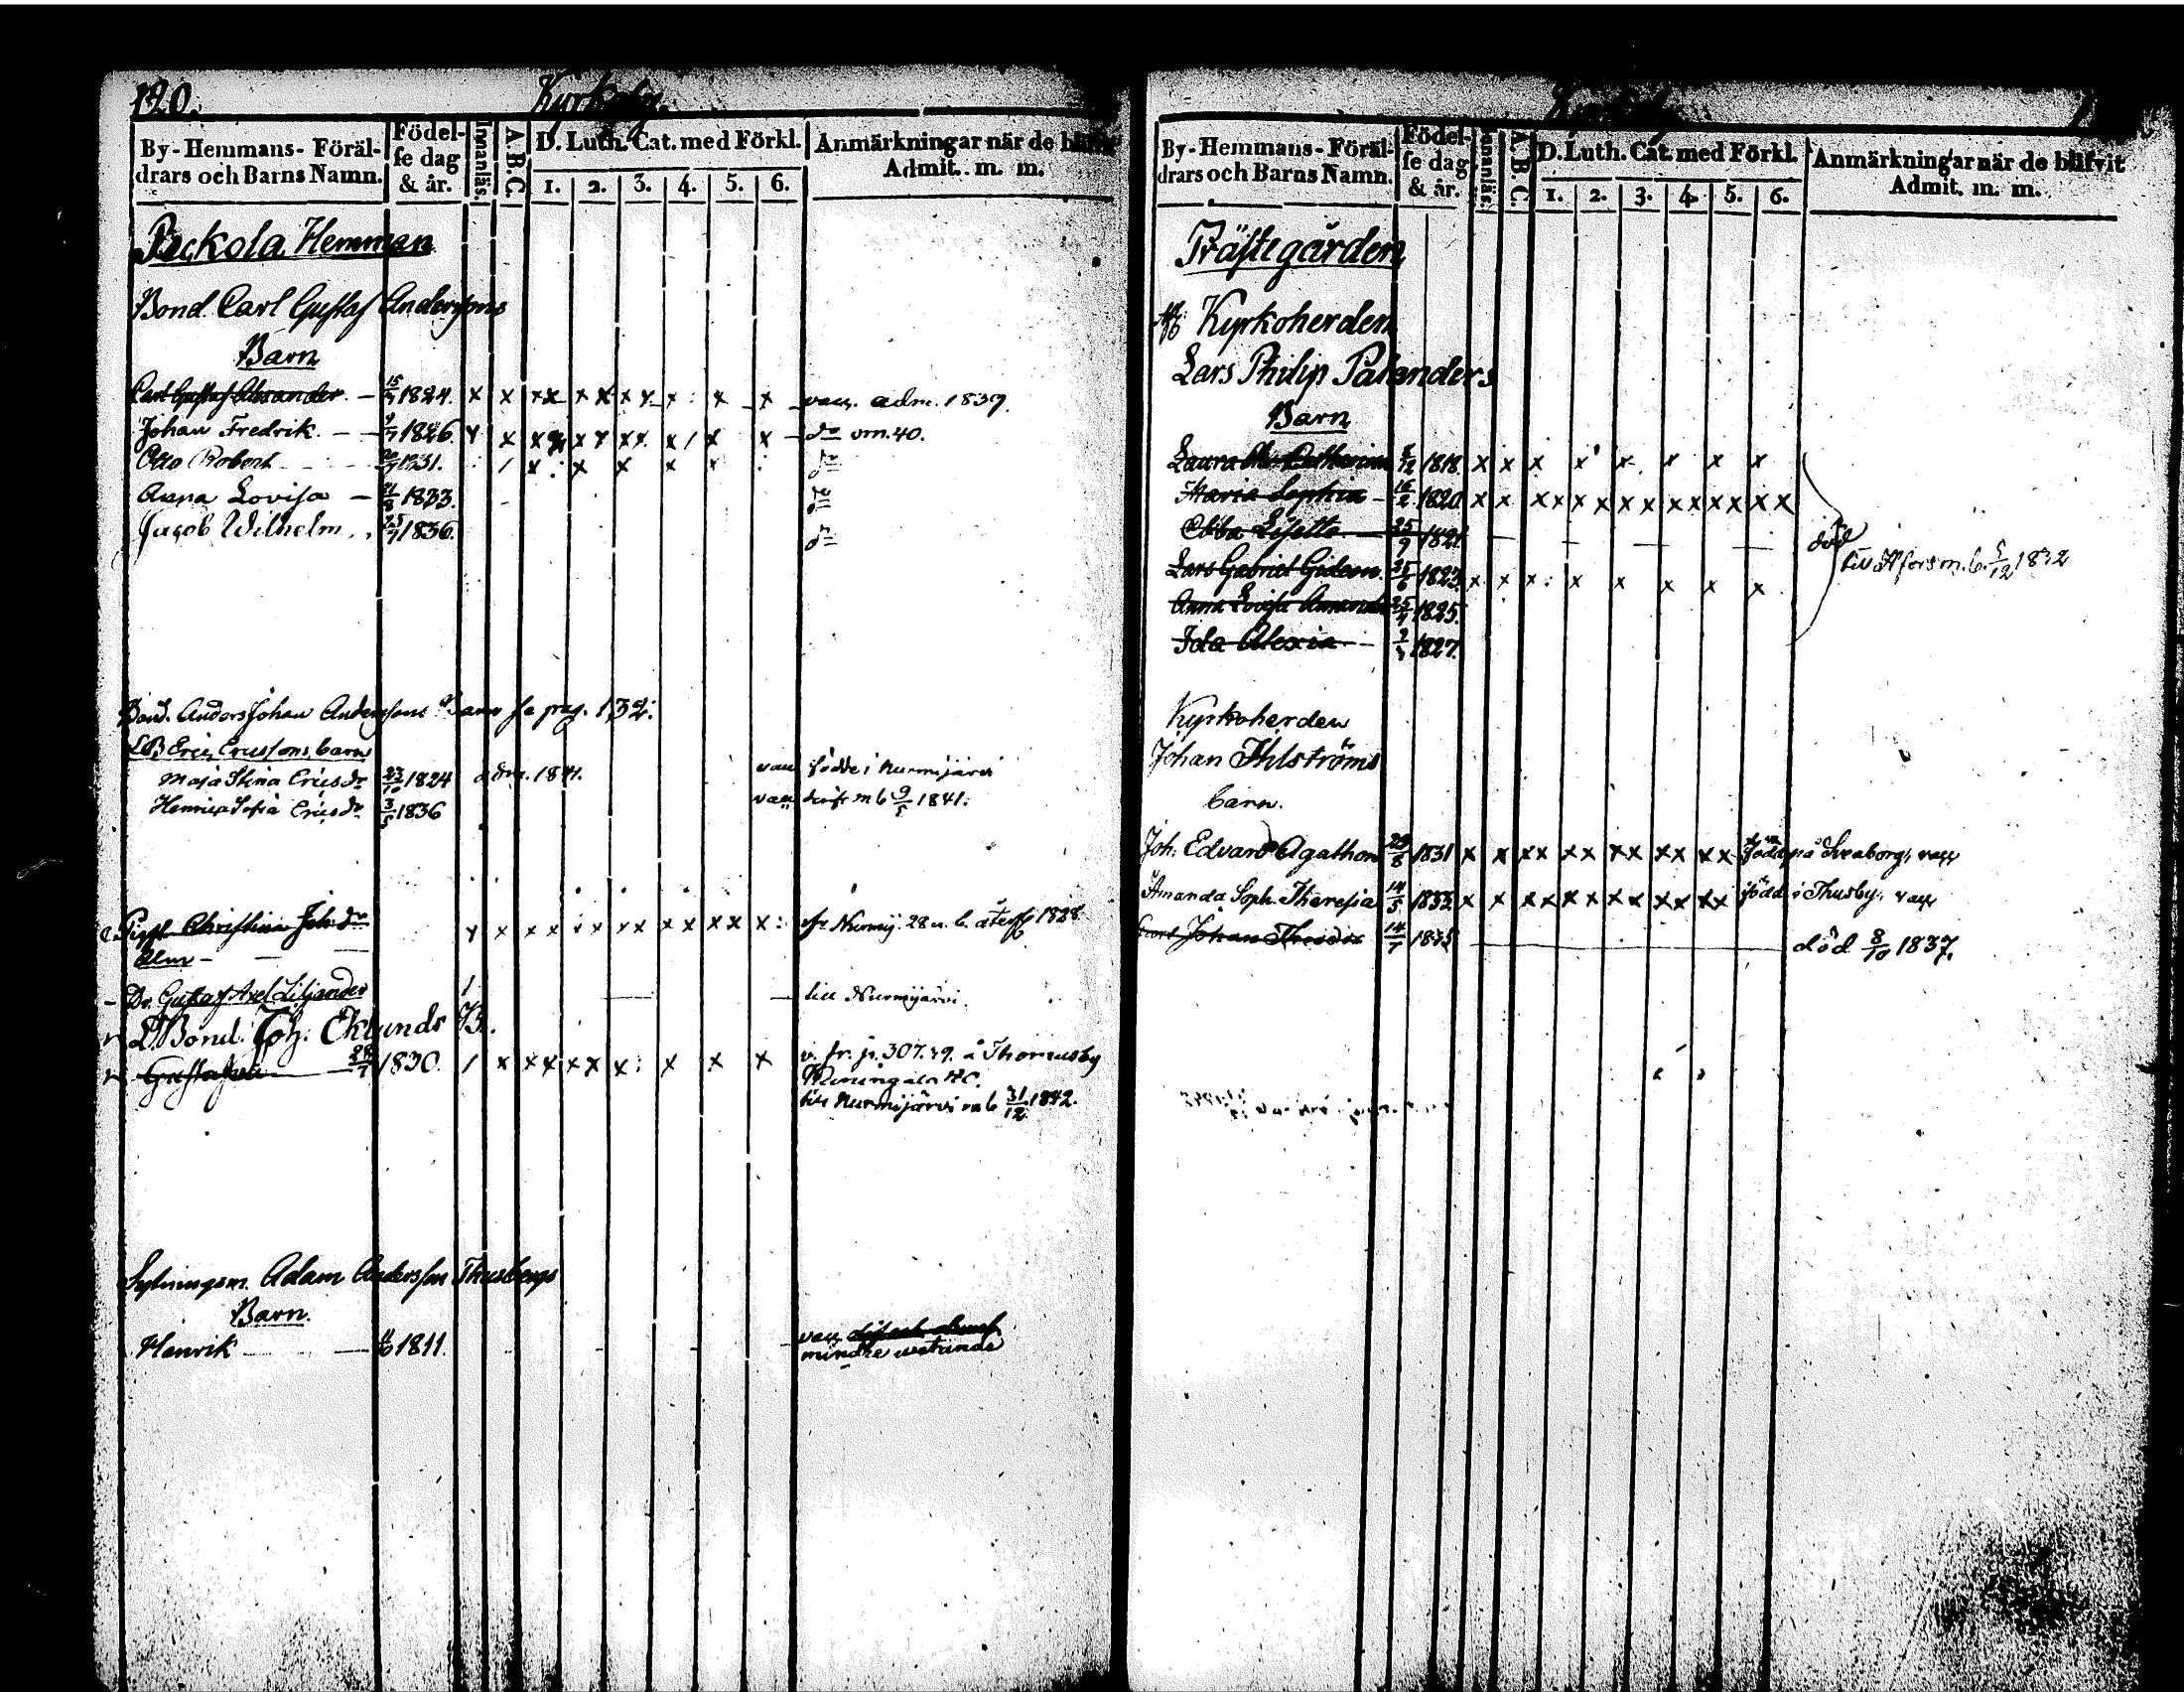 120.
Kyrkoby.
By-Hemmans-Föräl-
drars och Barns Namn.
Födel-
se dag
& år.
Innanläs.
A.B.C.
D. Luth. Cat. med Förkl.
1. 2. 3. 4. 5. 6.
Anmärkningar när de blifvit
Admit. m. m.
Peckola Hemman
Bond. Carl Gustaf Anderssons
Barn
Carl Gustaf Alexander — 15/ 1824. x x xx x x x x x x x vacc. adm. 1839.
Johan Fredrik — 1826. x x x x x x x x x do om 40.
Otto Robert 1831. / x x x x do
Anna Lovisa — 1833. do
Jacob Wilhelm 1836. do
Bond. Anders Johan Anderssons Barn se pag. 132.
LB Eric Erissons barn
Maja Stina Ericsdr 23/10 1824 adm. 1841. vacc födde i Nurmijärvi
Henrica Sofia Ericsdr 3/5 1836 vacc m b 9/5 1841.
Christina Joh.dr x x x x x x x x x x x x x Nurmij. 28 u. b. 1828
Dr. Gustaf Axel Liljander / till Nurmijärvi.
L. Bond. Joh. Eklunds B.
Gustafson 1830. / x x x x x x: x x x v. fr. p. 307. 39. å Thomasby
till Nurmijärvi m b 31/12 1842.
Sytningsm. Adam Andersson Thusbergs
Barn.
Henrik — 1811. vacc
mindre vetande
By-Hemmans-Föräl-
drars och Barns Namn.
Födel-
se dag
& år.
Innanläs.
A.B.C.
D. Luth. Cat. med Förkl.
1. 2. 3. 4. 5. 6.
Anmärkningar när de blifvit
Admit. m. m.
Prästegården
Kyrkoherden
Lars Philip Palanders
Barn
Laura 1818. x x x x x x x x
Maria Sophia — 16/2 1820. x x x x x x x x x x x x x x
Ebba Lisette — 25/9 1821. död
Lars Gabriel Gideon. 25/6 1823. x x x: x x x x x till Hfors m. b. 5/12 1832
Anna Lovisa Amanda 1825.
Ida Alexia — 1827.
Kyrkoherden
Johan Ahlströms
barn.
Joh. Edvard Agathon 29/8 1831 x x x x x x x x x x x x född på Sveaborg, vacc
Amanda Soph. Theresia 14/5 1833 x x x x x x x x x x x x född i Thusby, vacc
Johan Theodor 14/7 1835 död 8/10 1837.